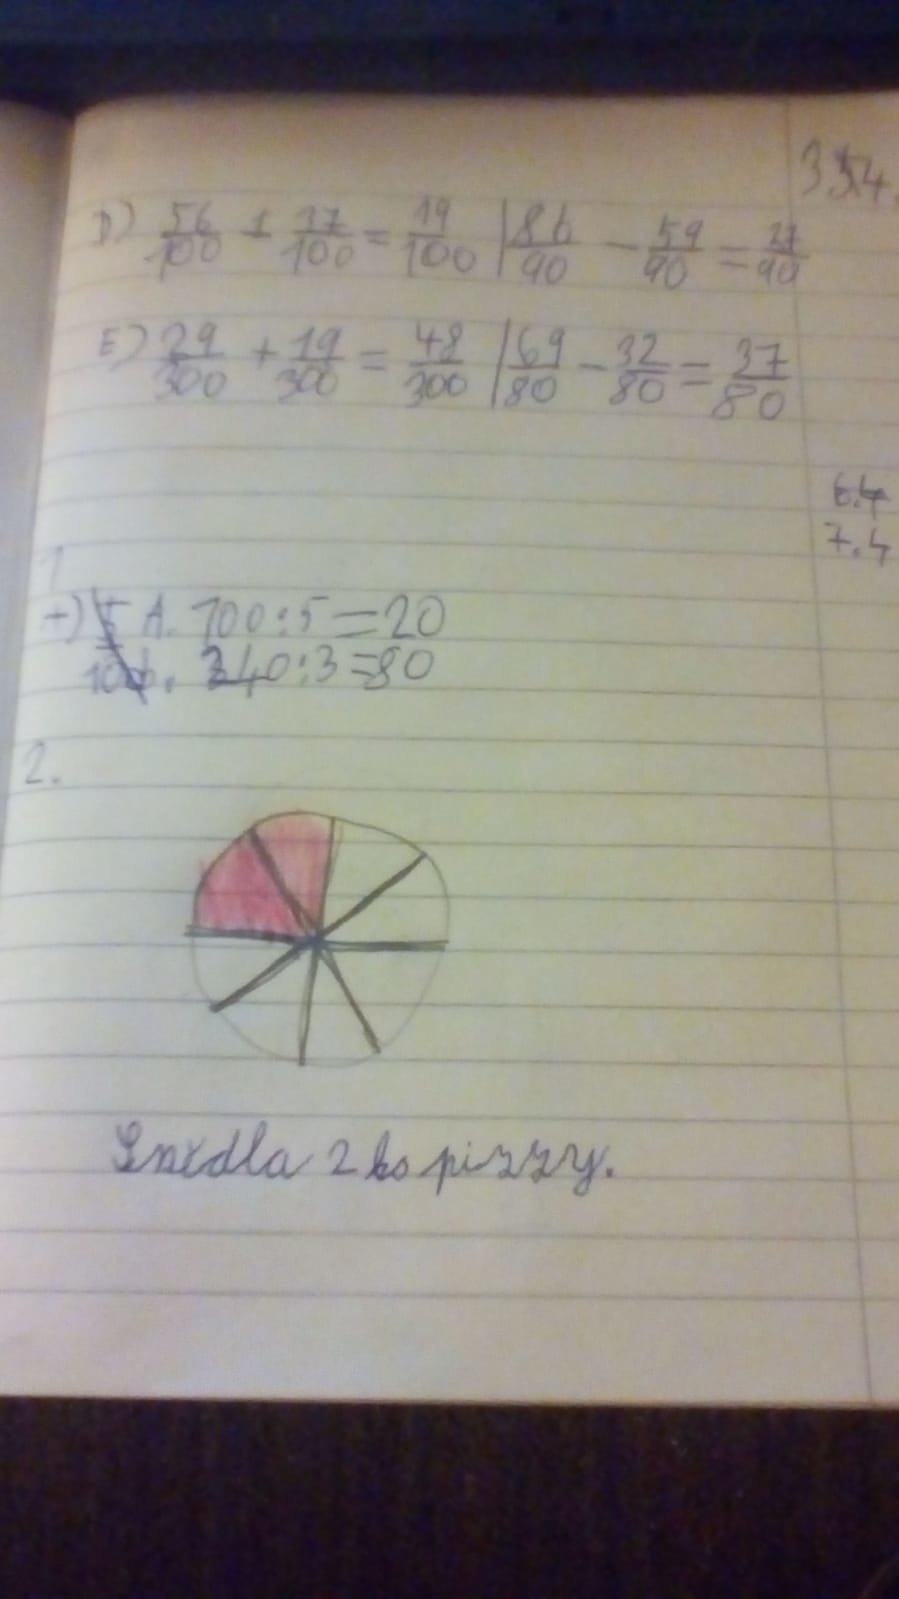 334.
D) 56/100 + 37/100 = 19/100 | 86/90 - 59/90 = 27/90
E) 29/300 + 19/300 = 48/300 | 69/80 - 32/80 = 37/80
6.4
7.4
1
+) A. 100:5=20
240:3=80
2.
Snědla 2 ks pizzy.